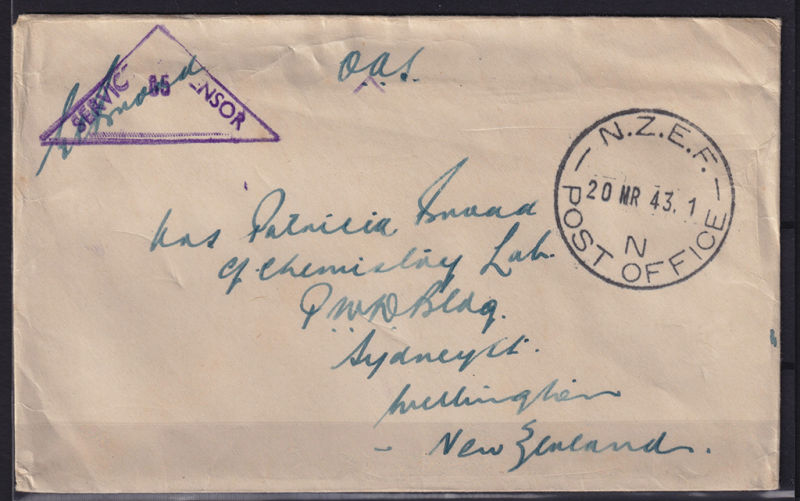 O.A.S.
SERVIC 85 ENSOR
— N.Z.E.F. —
20 MR 43. 1
N
POST OFFICE
Mrs Patricia Broad
C/ Chemistry Lab.
PWD Bldg.
Sydney St.
Wellington
– New Zealand.